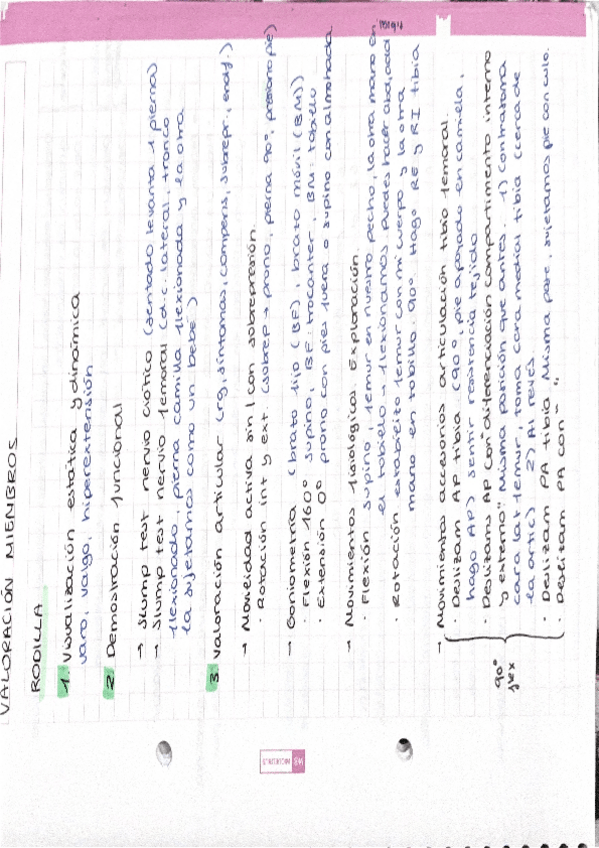 VALORACIÓN MIEMBROS
RODILLA
1. Visualización estática y dinámica
varo, valgo, hiperextensión
2. Demostración funcional
→ Slump test nervio ciático (sentado levanta 1 pierna)
→ Slump test nervio femoral (d.c. lateral, tronco
flexionado, pierna camilla flexionada y la otra
la sujetamos como un bebé)
3. Valoración articular (rg, síntomas, compens, sobrepr., endf.)
→ Movilidad activa sin/con sobrepresión.
· Rotación int y ext. (sobrep → prono, pierna 90°, presiono pie)
→ Goniometría (brazo fijo (BF), brazo móvil (BM))
· Flexión 160° supino, BF: trocanter, BM: tobillo
· Extensión 0° prono con pies fuera o supino con almohada
→ Movimientos fisiológicos. Exploración.
· Flexión supino, femur en nuestro pecho, la otra mano en
el tobillo → flexionamos. puedes hacer abd, add
· Rotación estabilizo femur con mi cuerpo y la otra
mano en tobillo. 90° Hago RE y RI tibia
→ Movimientos accesorios articulación tibio femoral.
· Deslizam AP tibia (90°, pie apoyado en camilla,
hago AP) sentir resistencia tejido
· Deslizams AP con diferenciación compartimento interno
y externo" Misma posición que antes. 1) Contratoma
cara lat femur, toma cara medial tibia (cerca de
la artic) 2) Al revés.
· Deslizam PA tibia Misma pare, sujetamos pie con culo.
· Deslizam PA con " "
90°
flex